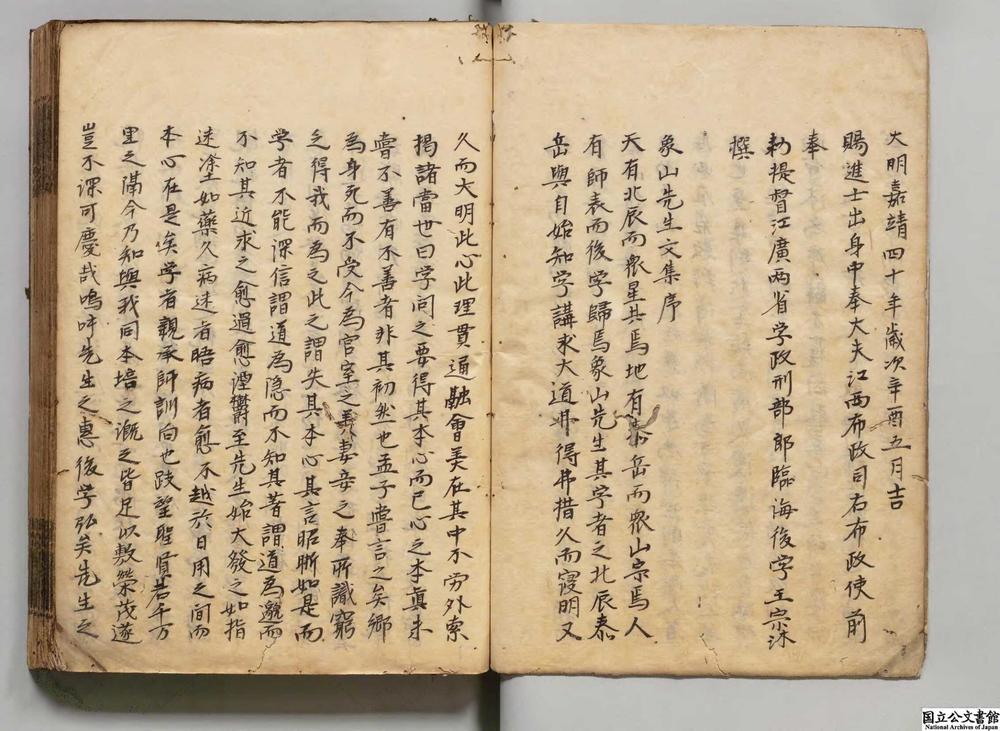 大明嘉靖四十年歲次辛酉五月吉
賜進士出身中奉大夫江西布政司右布政使前
奉
勑提督江廣兩省学政刑部郎臨海後学王宗沐
撰
象山先生文集序
天有北辰而衆星共焉地有泰岳而衆山宗焉人
有師表而後学歸焉象山先生其学者之北辰泰
岳與自始知学講求大道弗得弗措久而寖明又
久而大明此心此理貫通融會美在其中不劳外索
揭諸當世曰学問之要得其本心而已心之本真未
嘗不善有不善者非其初然也孟子嘗言之矣鄉
為身死而不受今為宮室之美妻妾之奉所識窮
乏得我而為之此之謂失其本心其言昭晰如是而
学者不能深信謂道為隐而不知其著謂道為邈而
不知其近求之愈過愈湮欝至先生始大發之如指
迷塗如藥久病迷者晤病者愈不越於日用之間而
本心在是矣学者親承師訓向也跂望聖賢若千万
里之隔今乃知與我同本培之溉之皆足以敷榮茂遂
豈不深可慶哉嗚呼先生之惠後学弘矣先生之
国立公文書館
National Archives of Japan